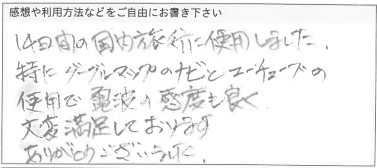 感想や利用方法などをご自由にお書き下さい
14日間の国内旅行に使用しました。
特にグーグルマップのナビとユーチューブの
使用で電波の感度も良く
大変満足しております
ありがとうございました。